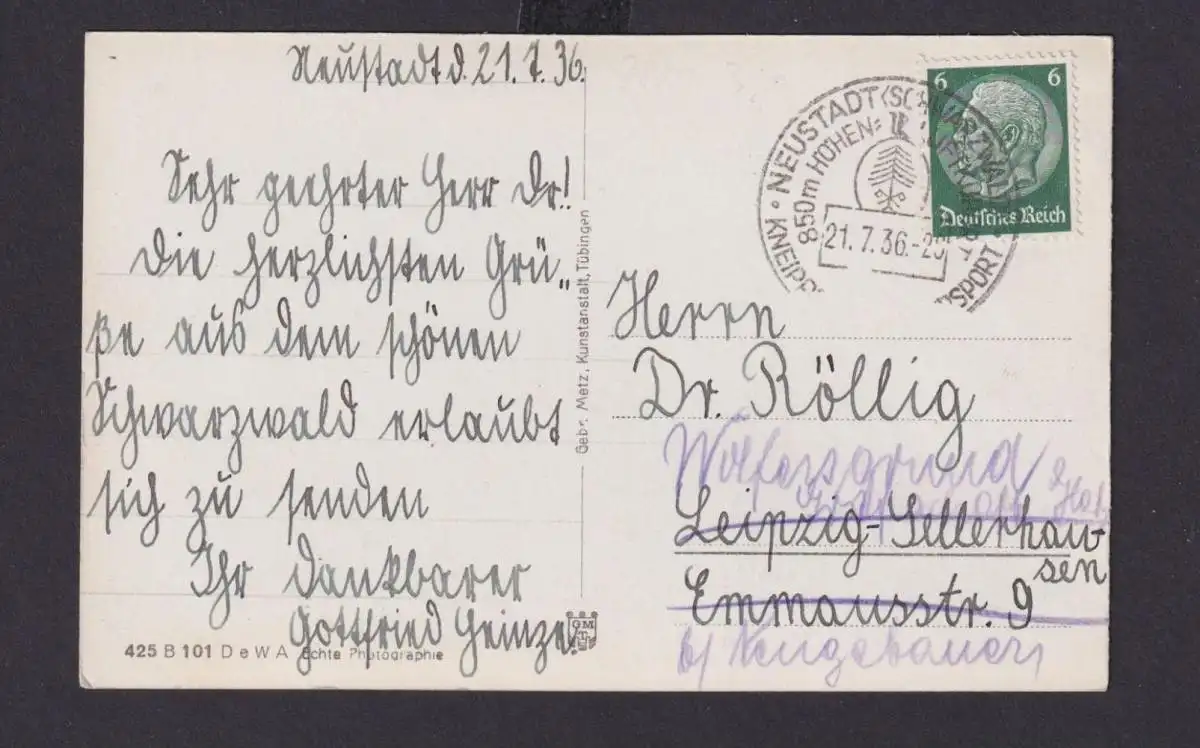 Neustadt d. 21. 7. 36.
Sehr geehrter Herr Dr.!
Die herzlichsten Grü„
ße aus dem schönen
Schwarzwald erlaubt
sich zu senden
Ihr dankbarer
Gottfried Heinze.
425 B 101 DeWA Echte Photographie
GM
T
Gebr. Metz, Kunstanstalt, Tübingen
NEUSTADT (SCHWARZWALD)
850m HÖHEN=LUFTKURORT
KNEIPP
SPORT
21.7.36.-20
6 6
Deutsches Reich
Herrn
Dr. Röllig
Wolfersgrund
Leipzig-Sellerhau-
sen
Emmausstr. 9
b/ Neugebauer